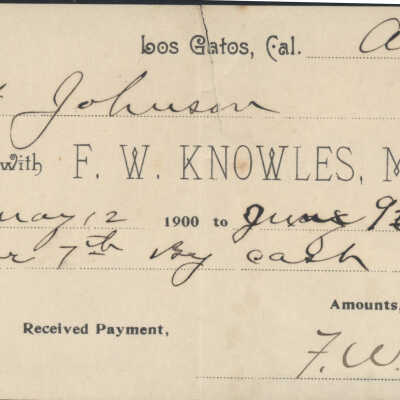 Los Gatos, Cal. A
Johnson
with F. W. KNOWLES, M
May 12 1900 to June 9
7th By cash
Amounts,
Received Payment,
F. W.